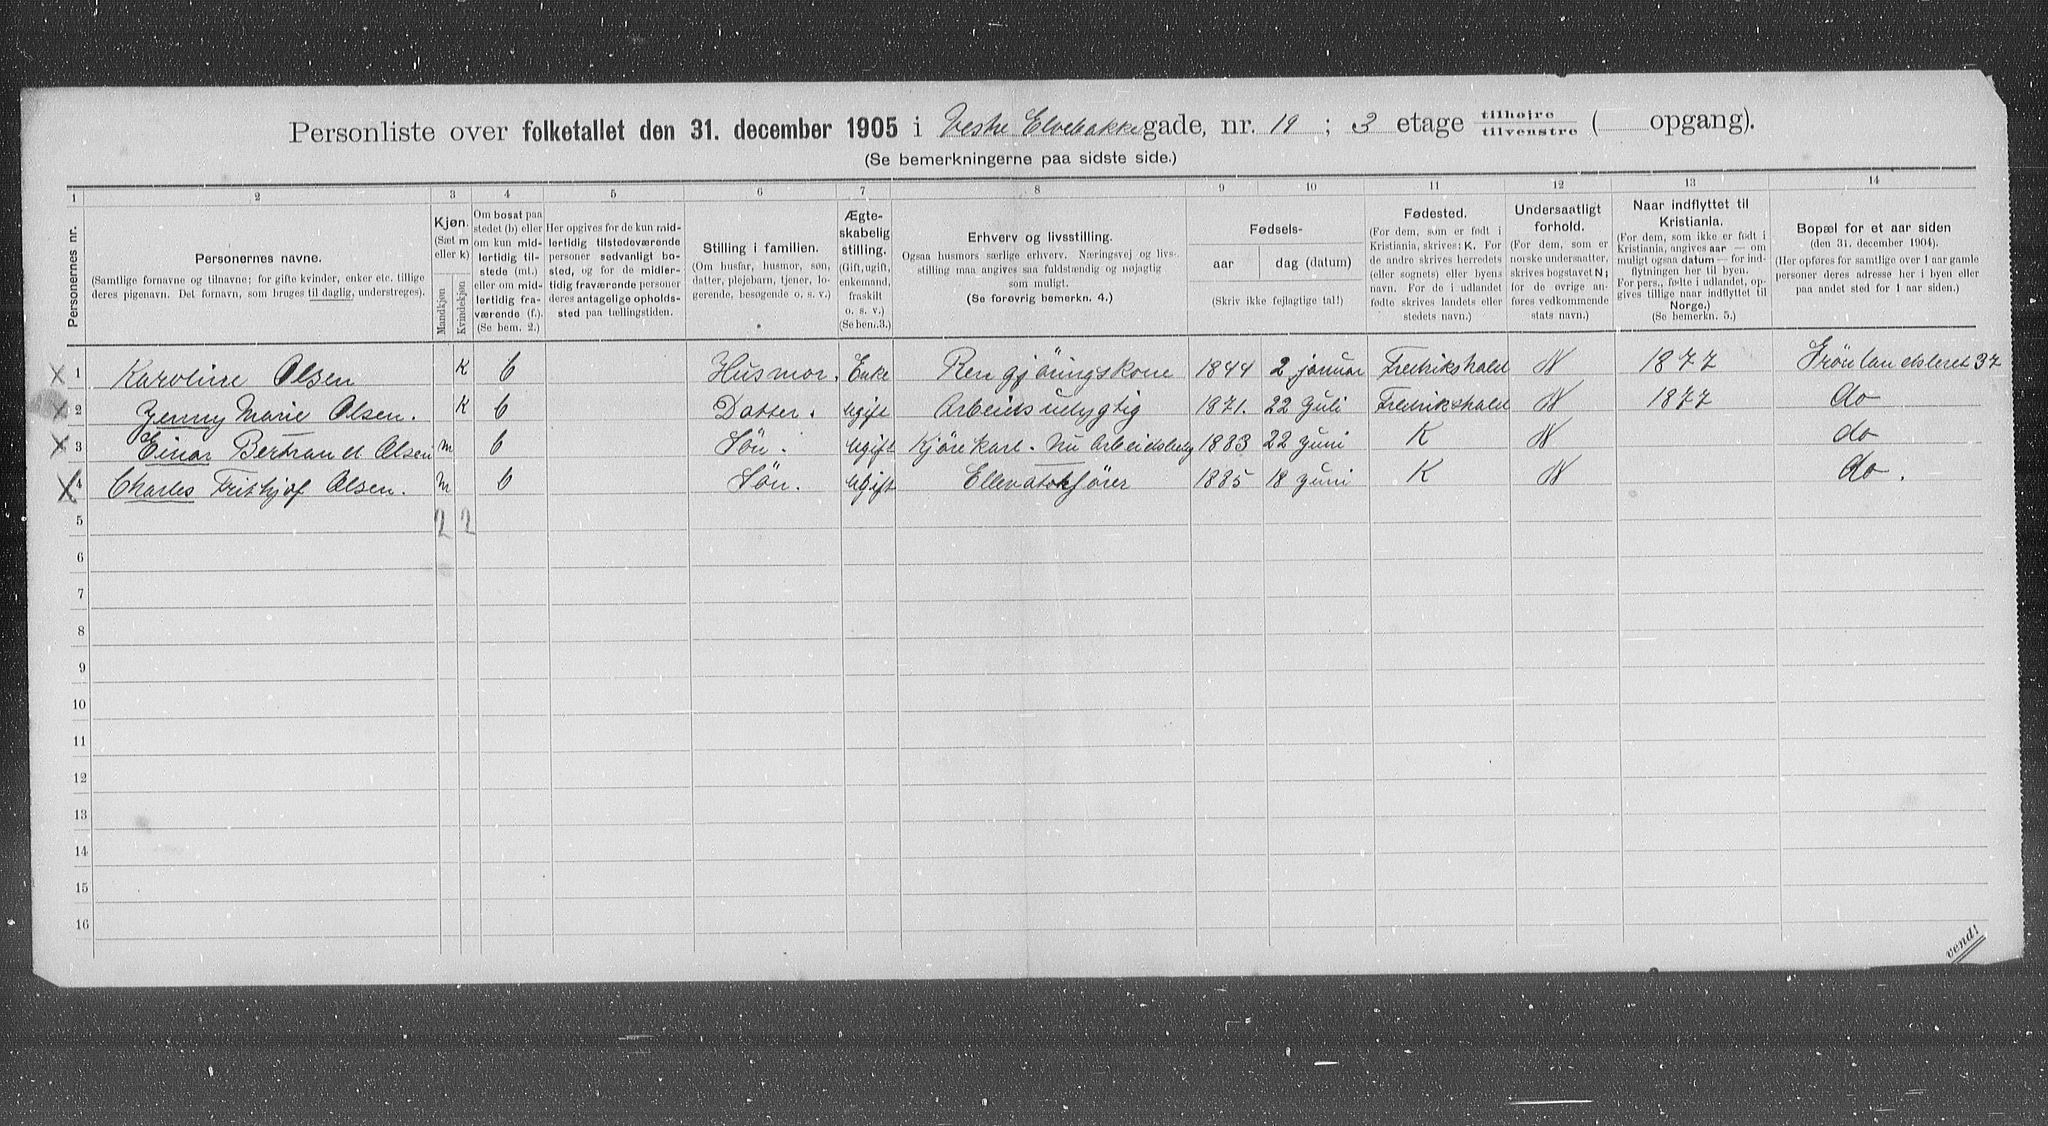 Personliste over folketallet den 31. december 1905 i Vestre Elvebakkegade, nr. 19 ; 3 etage tilhøjre tilvenstre ( opgang).
(Se bemerkningerne paa sidste side.)
1 2 3 4 5 6 7 8 9 10 11 12 13 14
Personernes nr.
Personernes navne.
(Samtlige fornavne og tilnavne; for gifte kvinder, enker etc. tillige
deres pigenavn. Det fornavn, som bruges til daglig, understreges).
Kjøn.
(Sæt m
eller k)
Mandkjøn
Kvindekjøn
Om bosat paa
stedet (b) eller
om kun mid-
lertidig til-
stede (mt.)
eller om mid-
lertidig fra-
værende (f.).
(Se bem. 2.)
Her opgives for de kun mid-
lertidig tilstedeværende
personer sedvanligt bo-
sted, og for de midler-
tidig fraværende personer
deres antagelige opholds-
sted paa tællingstiden.
Stilling i familien.
(Om husfar, husmor, søn,
datter, plejebarn, tjener, lo-
gerende, besøgende o. s. v.)
Ægte-
skabelig
stilling.
(Gift, ugift,
enkemand,
fraskilt
o. s. v.)
(Se bem. 3.)
Erhverv og livsstilling.
Ogsaa husmors særlige erhverv. Næringsvej og livs-
stilling maa angives saa fuldstændig og nøjagtig
som muligt.
(Se forøvrig bemerkn. 4.)
Fødsels-
aar dag (datum)
(Skriv ikke fejlagtige tal!)
Fødested.
(For dem, som er født i
Kristiania, skrives: K. For
de andre skrives herredets
(eller sognets) eller byens
navn. For de i udlandet
fødte skrives landets eller
stedets navn.)
Undersaatligt
forhold.
(For dem, som er
norske undersatter,
skrives bogstavet N;
for de øvrige an-
føres vedkommende
stats navn.)
Naar indflyttet til
Kristiania.
(For dem, som ikke er født i
Kristiania, angives aar — om
muligt ogsaa datum — for ind-
flytningen her til byen.
For pers., fødte i udlandet, op-
gives tillige naar indflyttet til
Norge.)
(Se bemerkn. 5.)
Bopæl for et aar siden
(den 31. december 1904).
(Her opføres for samtlige over 1 aar gamle
personer deres adresse her i byen eller
paa andet sted for 1 aar siden.)
X 1 Karoline Olsen K b Husmor. Enke Rengjöringskone 1844 2 januar Fredrikshald N 1877 Grönlandsleret 37
X 2 Jenny Marie Olsen. K b Datter. Ugift Arbeidsudygtig 1871. 22 Juli Fredrikshald N 1877 do
X 3 Einar Bertrand Olsen m b Sön. Ugift Kjörekarl. Nu Arbeidsledig 1883 22 Juni K N do
X 4 Charles Frithjof Olsen. m b Sön. Ugift Ellevatorförer 1885 18 Juni K N do.
5 2 2
6
7
8
9
10
11
12
13
14
15
16
vend!